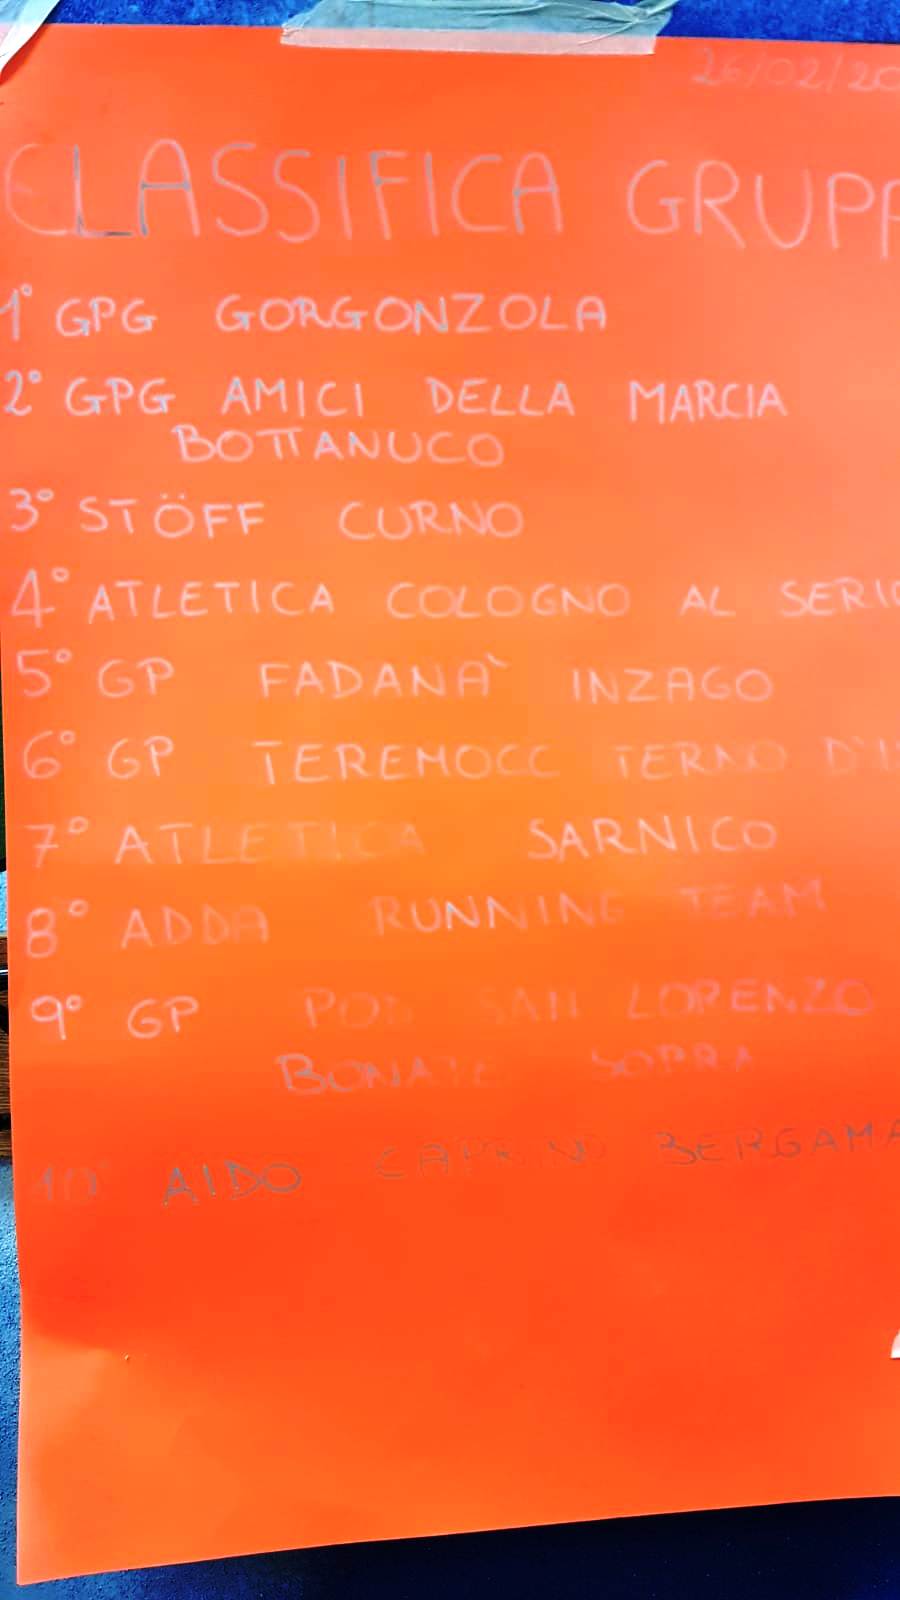 26/02/20
CLASSIFICA GRUPP
1° GPG GORGONZOLA
2° GPG AMICI DELLA MARCIA
BOTTANUCO
3° STÖFF CURNO
4° ATLETICA COLOGNO AL SERIO
5° GP FADANA` INZAGO
6° GP TEREMOCC TERNO D'IS
7° ATLETICA SARNICO
8° ADDA RUNNING TEAM
9° GP POD SAN LORENZO
BONATE SOPRA
10° AIDO CAPRINO BERGAMA